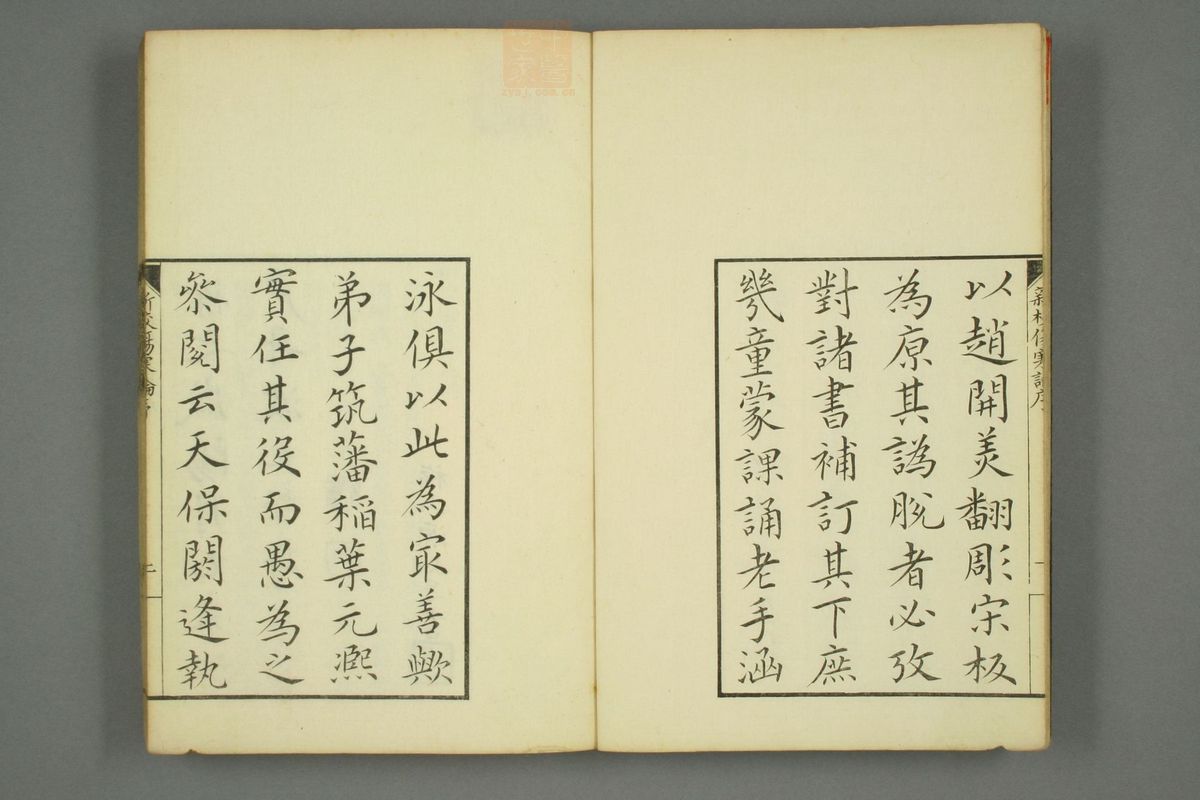 以趙開美翻彫宋板
為原其譌脫者必攷
對諸書補訂其下庶
幾童蒙課誦老手涵
泳俱以此為㝡善歟
弟子筑藩稲葉元熈
實任其役而愚為之
叅閱云天保閼逢執
新校傷寒論序
一
新校傷寒論序
二
zysj.com.cn